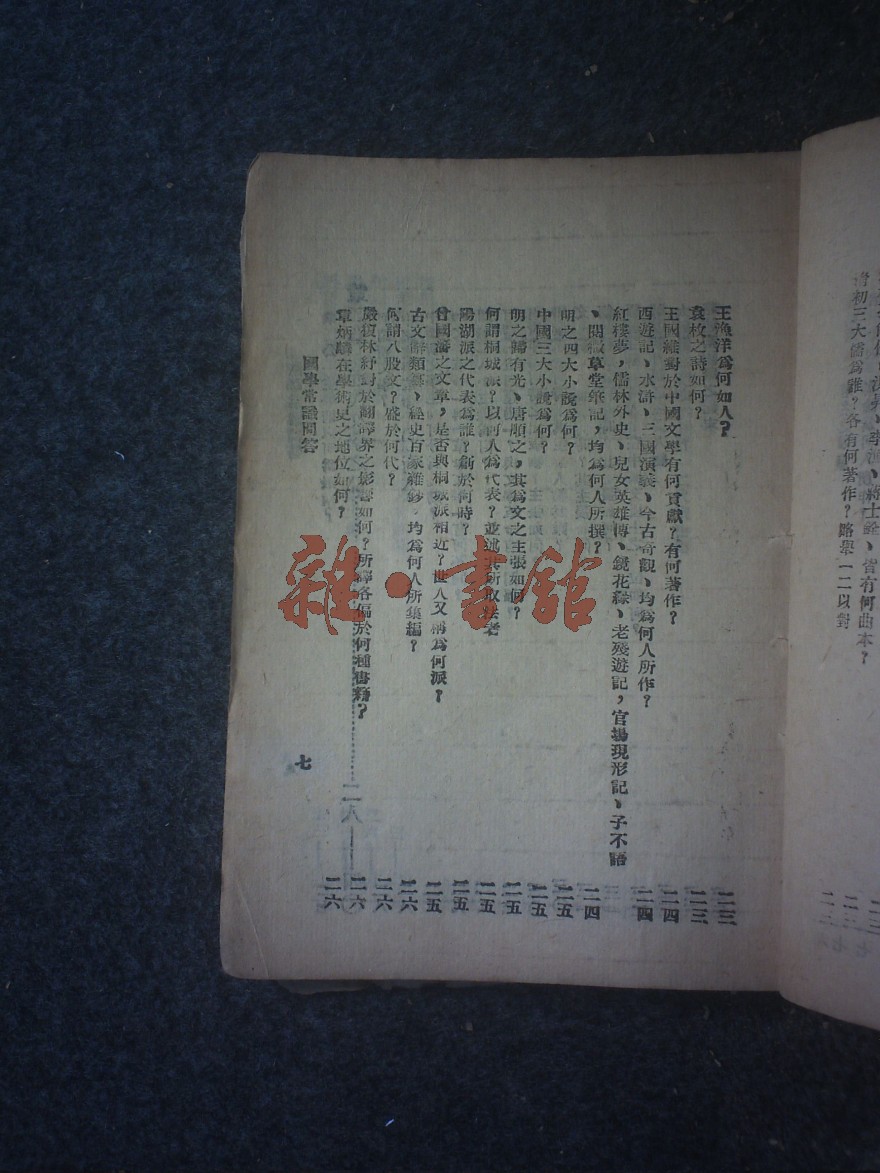 清初三大儒為誰？各有何著作？略舉一二以對
二三
王漁洋為何如人？
二三
袁枚之詩如何？
二三
王國維對於中國文學有何貢獻？有何著作？
二四
西遊記、水滸、三國演義、今古奇觀、均為何人所作？
二四
紅樓夢，儒林外史、兒女英雄傳、鏡花緣、老殘遊記，官場現形記、子不語
、閱微草堂筆記，均為何人所撰？
二四
明之四大小說為何？
二五
中國三大小說為何？
二五
明之歸有光、唐順之，其為文之主張如何？
二五
何謂桐城派？以何人為代表？並述其所取法者
二五
陽湖派之代表為誰？創於何時？
二五
曾國藩之文章，是否與桐城派相近？世人又稱為何派？
二五
古文辭類纂、經史百家雜鈔，均為何人所集編？
二六
何謂八股文？盛於何代？
二六
嚴復林紓對於翻譯界之影響如何？所譯各偏於何種書籍？
二六
章炳麟在學術史之地位如何？
二六
國學常識問答
七
二八
雜·書館